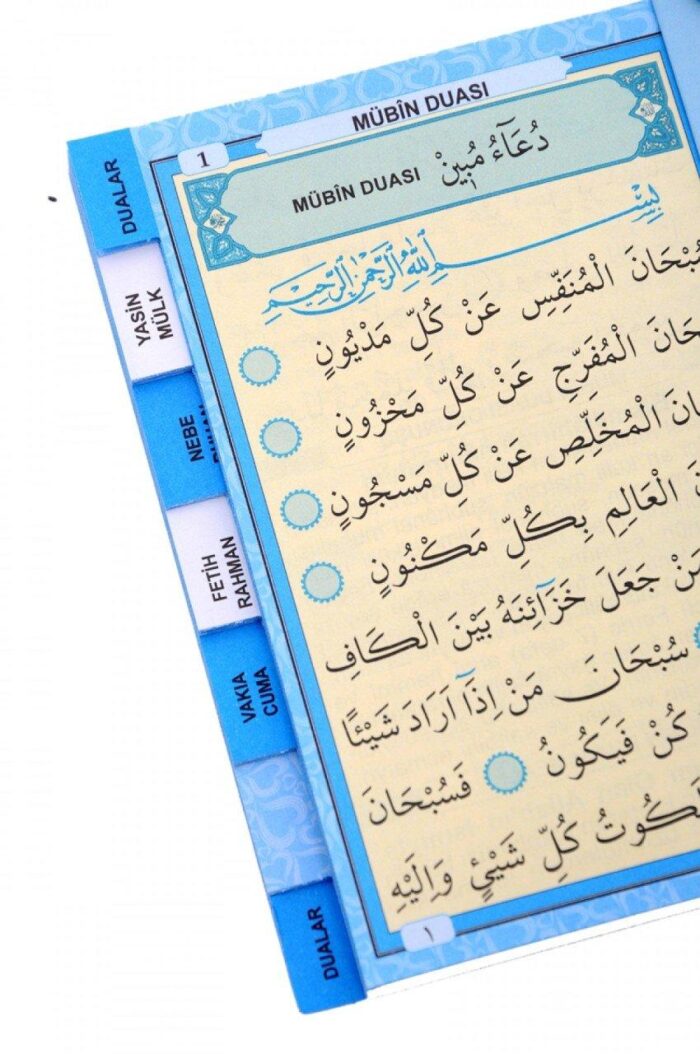 MÜBÎN DUASI
1
MÜBÎN DUASI دُعَآءُ مُبِينْ
١
بِسْمِ اللّٰهِ الرَّحْمٰنِ الرَّحِيمِ
بْحَانَ الْمُنَفِّسِ عَنْ كُلِّ مَدْيُونٍ
حَانَ الْمُفَرِّجِ عَنْ كُلِّ مَحْزُونٍ
انَ الْمُخَلِّصِ عَنْ كُلِّ مَسْجُونٍ
نَ الْعَالِمِ بِكُلِّ مَكْنُونٍ
مَنْ جَعَلَ خَزَآئِنَهُ بَيْنَ الْكَافِ
سُبْحَانَ مَنْ اِذَٓا اَرَادَ شَيْئًا
كُنْ فَيَكُونُ فَسُبْحَانَ
لَكُوتُ كُلِّ شَيْئٍ وَاِلَيْهِ
١
DUALAR
YASİN
MÜLK
NEBE
FETİH
RAHMAN
VAKIA
CUMA
DUALAR